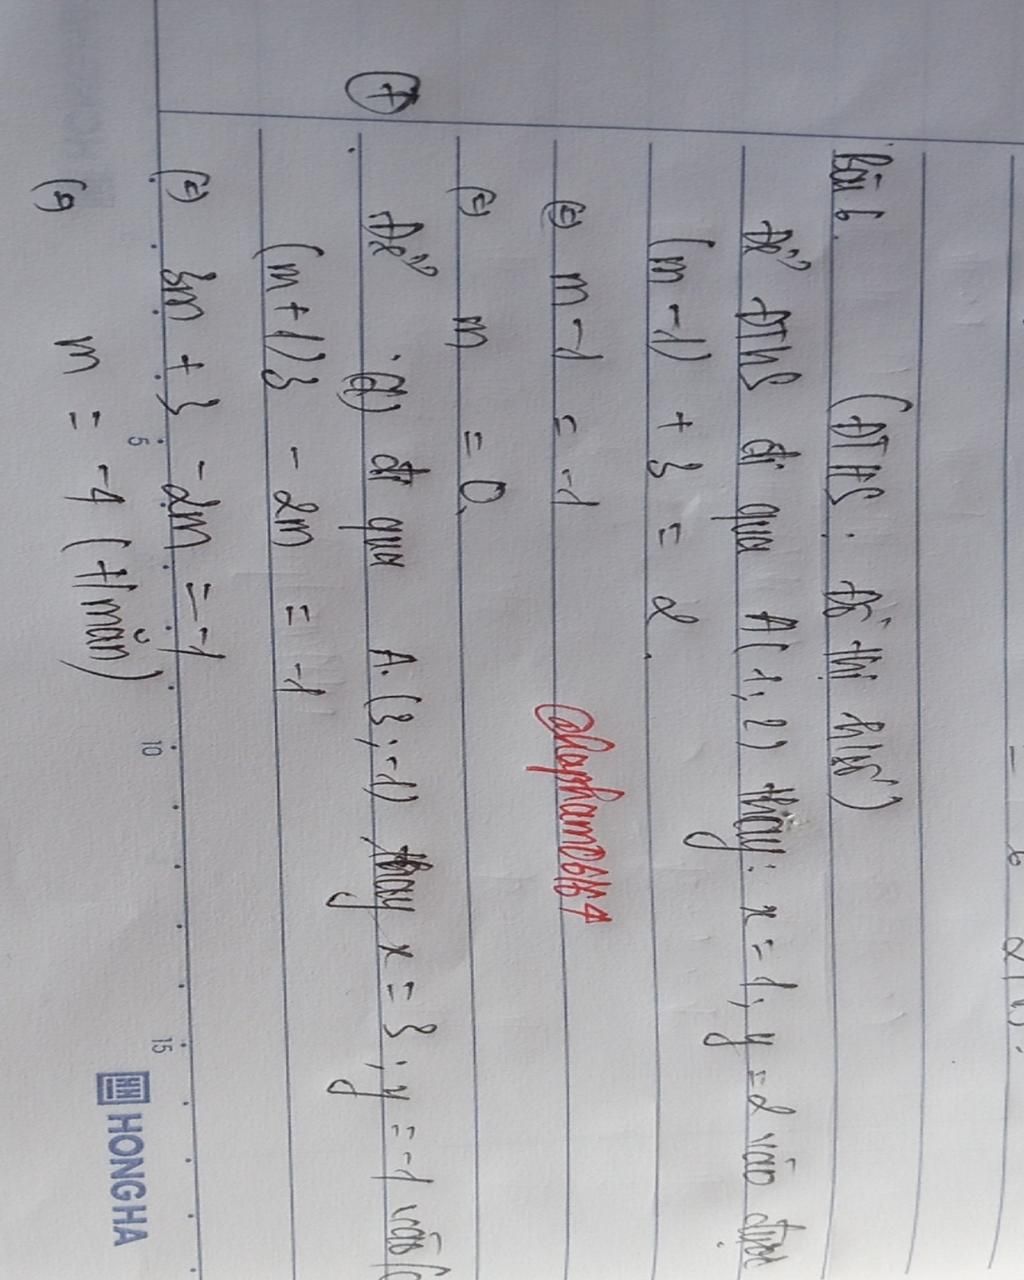 Bài 6. (ĐTHS: đồ thị h/số)
Để ĐThS đi qua A(1, 2) thay: x = 1, y = 2 vào được
(m - 1) + 3 = 2.
⇔ m - 1 = -1
@hapham26664
⇔ m = 0.
7
Để (d) đi qua A. (3; -1) thay x = 3; y = -1 vào (
(m + 1)3 - 2m = -1
⇔ 3m + 3 - 2m = -1
⇔ m = -4 (t/mãn)
5 10 15
HONG HA